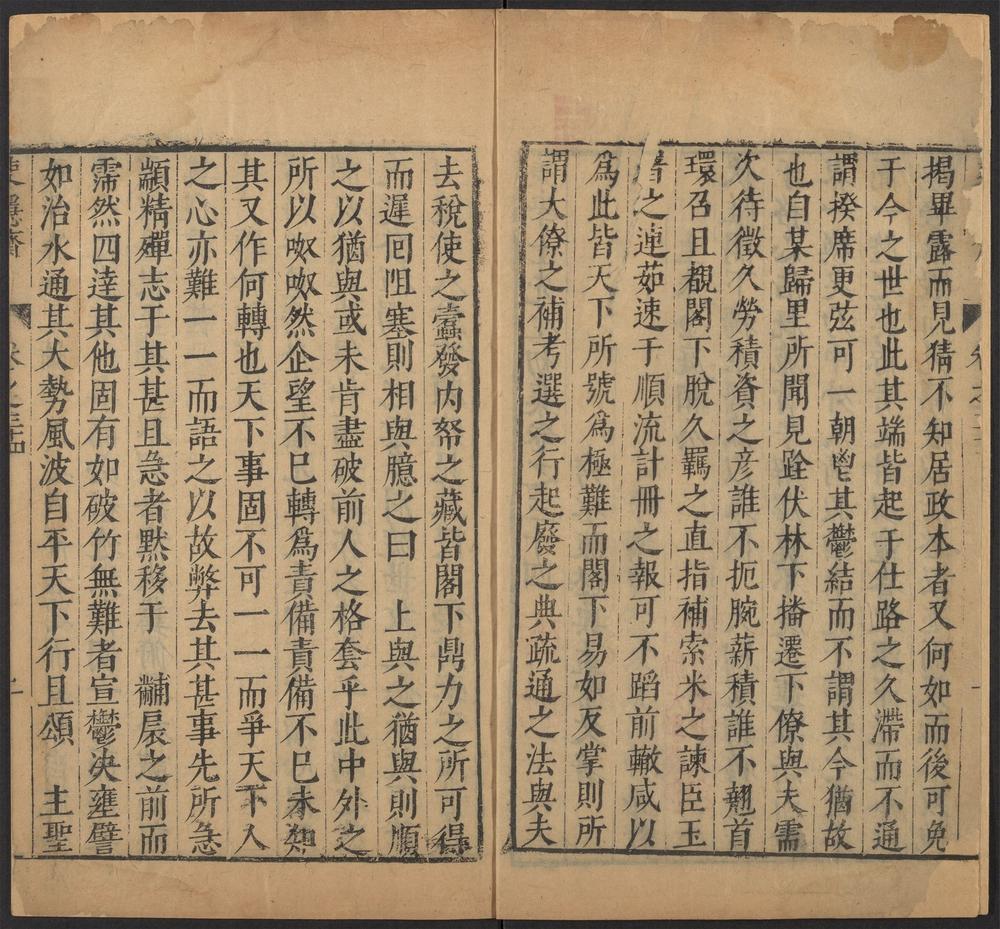 揭畢露而見猜不知居政本者又何如而後可免
于今之世也此其端皆起于仕路之久滯而不通
謂揆席更弦可一朝鬯其鬱結而不謂其今猶故
也自某歸里所聞見跧伏林下播遷下僚與夫需
欠待徵久勞積資之彥誰不扼腕薪積誰不翹首
環召且覩閣下脫久羈之直指補索米之諫臣玉
之連茹速于順流計冊之報可不蹈前轍咸以
為此皆天下所號為極難而閣下易如反掌則所
謂大僚之補考選之行起廢之典疏通之法與夫
去稅使之蠹發內帑之藏皆閣下鼎力之所可得
而遲回阻塞則相與臆之曰 上與之猶與則順
之以猶與或未肯盡破前人之格套乎此中外之
所以呶呶然企望不已轉為責備責備不已未知
其又作何轉也天下事固不可一一而爭天下人
之心亦難一一而語之以故弊去其甚事先所急
顓精殫志于其甚且急者默移于 黼扆之前而
霈然四達其他固有如破竹無難者宣鬱决壅譬
如治水通其大勢風波自平天下行且頌 主聖
卷之三十四